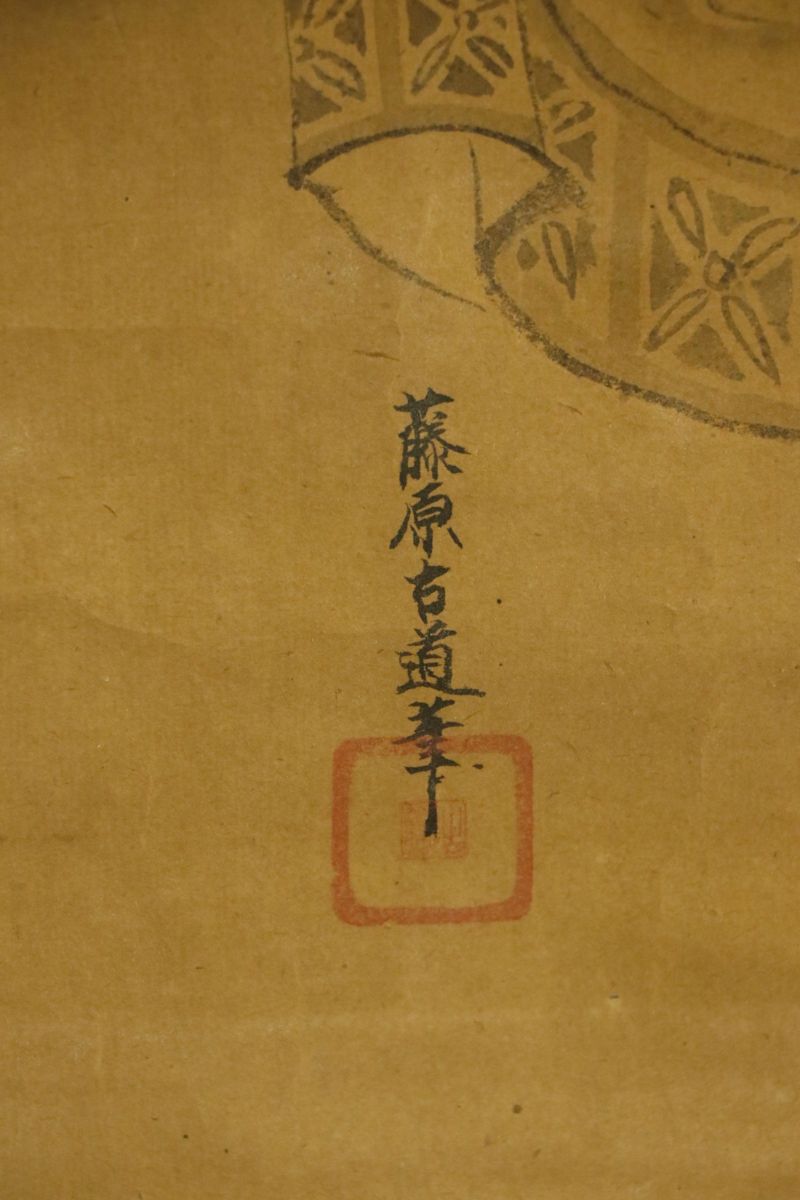 藤原古道筆